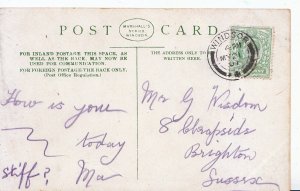 POST CARD
MARSHALL'S
SERIES
WINDSOR
FOR INLAND POSTAGE THIS SPACE, AS
WELL AS THE BACK, MAY NOW BE
USED FOR COMMUNICATION.
FOR FOREIGN POSTAGE THE BACK ONLY.
(Post Office Regulation.)
THE ADDRESS ONLY TO
WRITTEN HERE.
WINDSOR
How is your
today
stiff? Ma
Mr G Wisdom
8 Cheapside
Brighton
Sussex